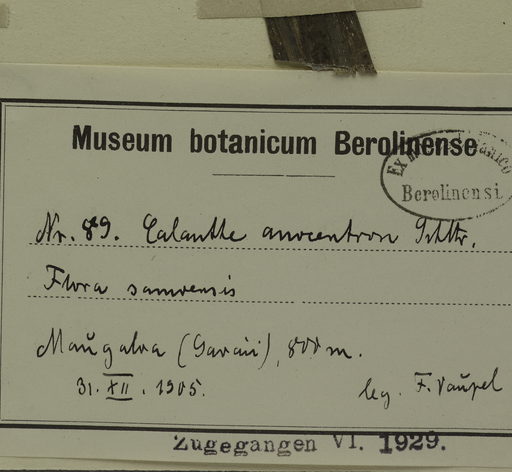 Museum botanicum Berolinense
Ex Museo botanico
Berolinensi
Nr. 89. Calanthe anocentron Schltr.
Flora samoensis
Maŭgaloa (Savaii), 800 m.
31. XII. 1905.
leg. F. Vaŭpel
Zugegangen VI. 1929.